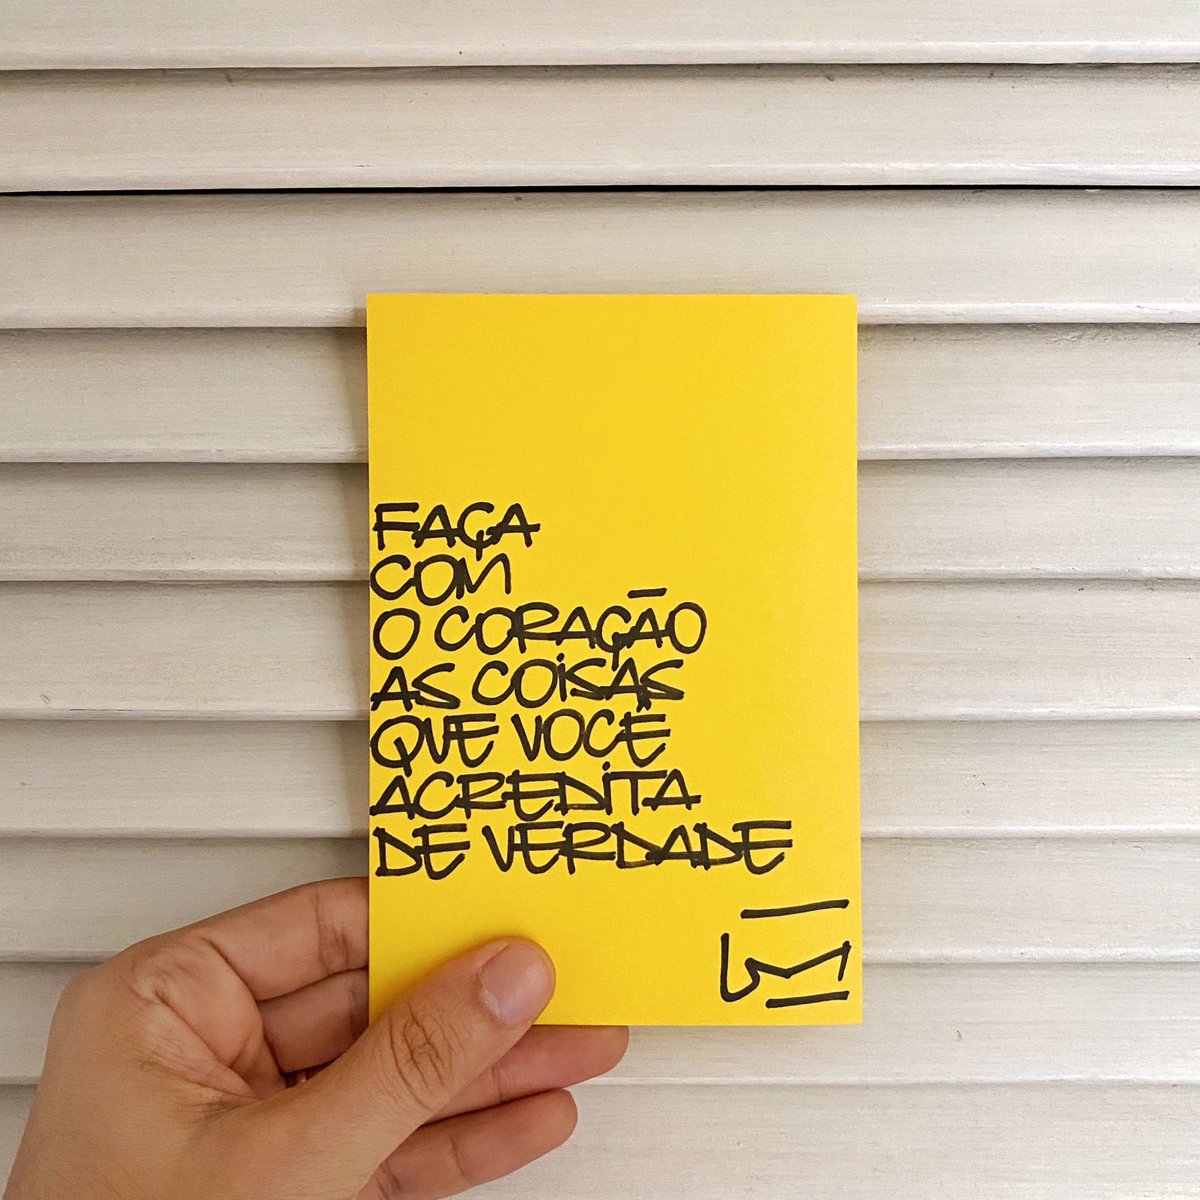 FAÇA
COM
O CORAÇÃO
AS COISAS
QUE VOCE
ACREDITA
DE VERDADE